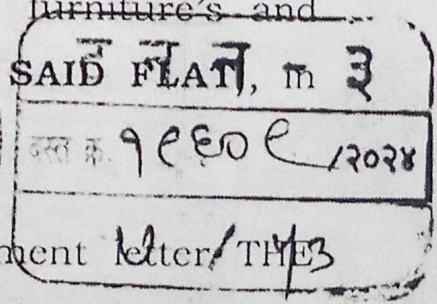 furniture's and
SAID FLAT, in
न न न ३
दस्त क्र. १९६०९ /२०२४
ment letter/ THE
१२/५३